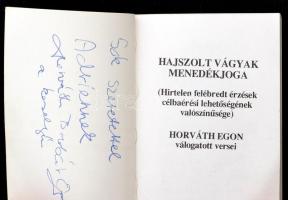 Sok szeretettel
Adriennek
Horváth
a
HAJSZOLT VÁGYAK
MENEDÉKJOGA
(Hirtelen felébredt érzések
célbaérési lehetőségének
valószínűsége)
HORVÁTH EGON
válogatott versei